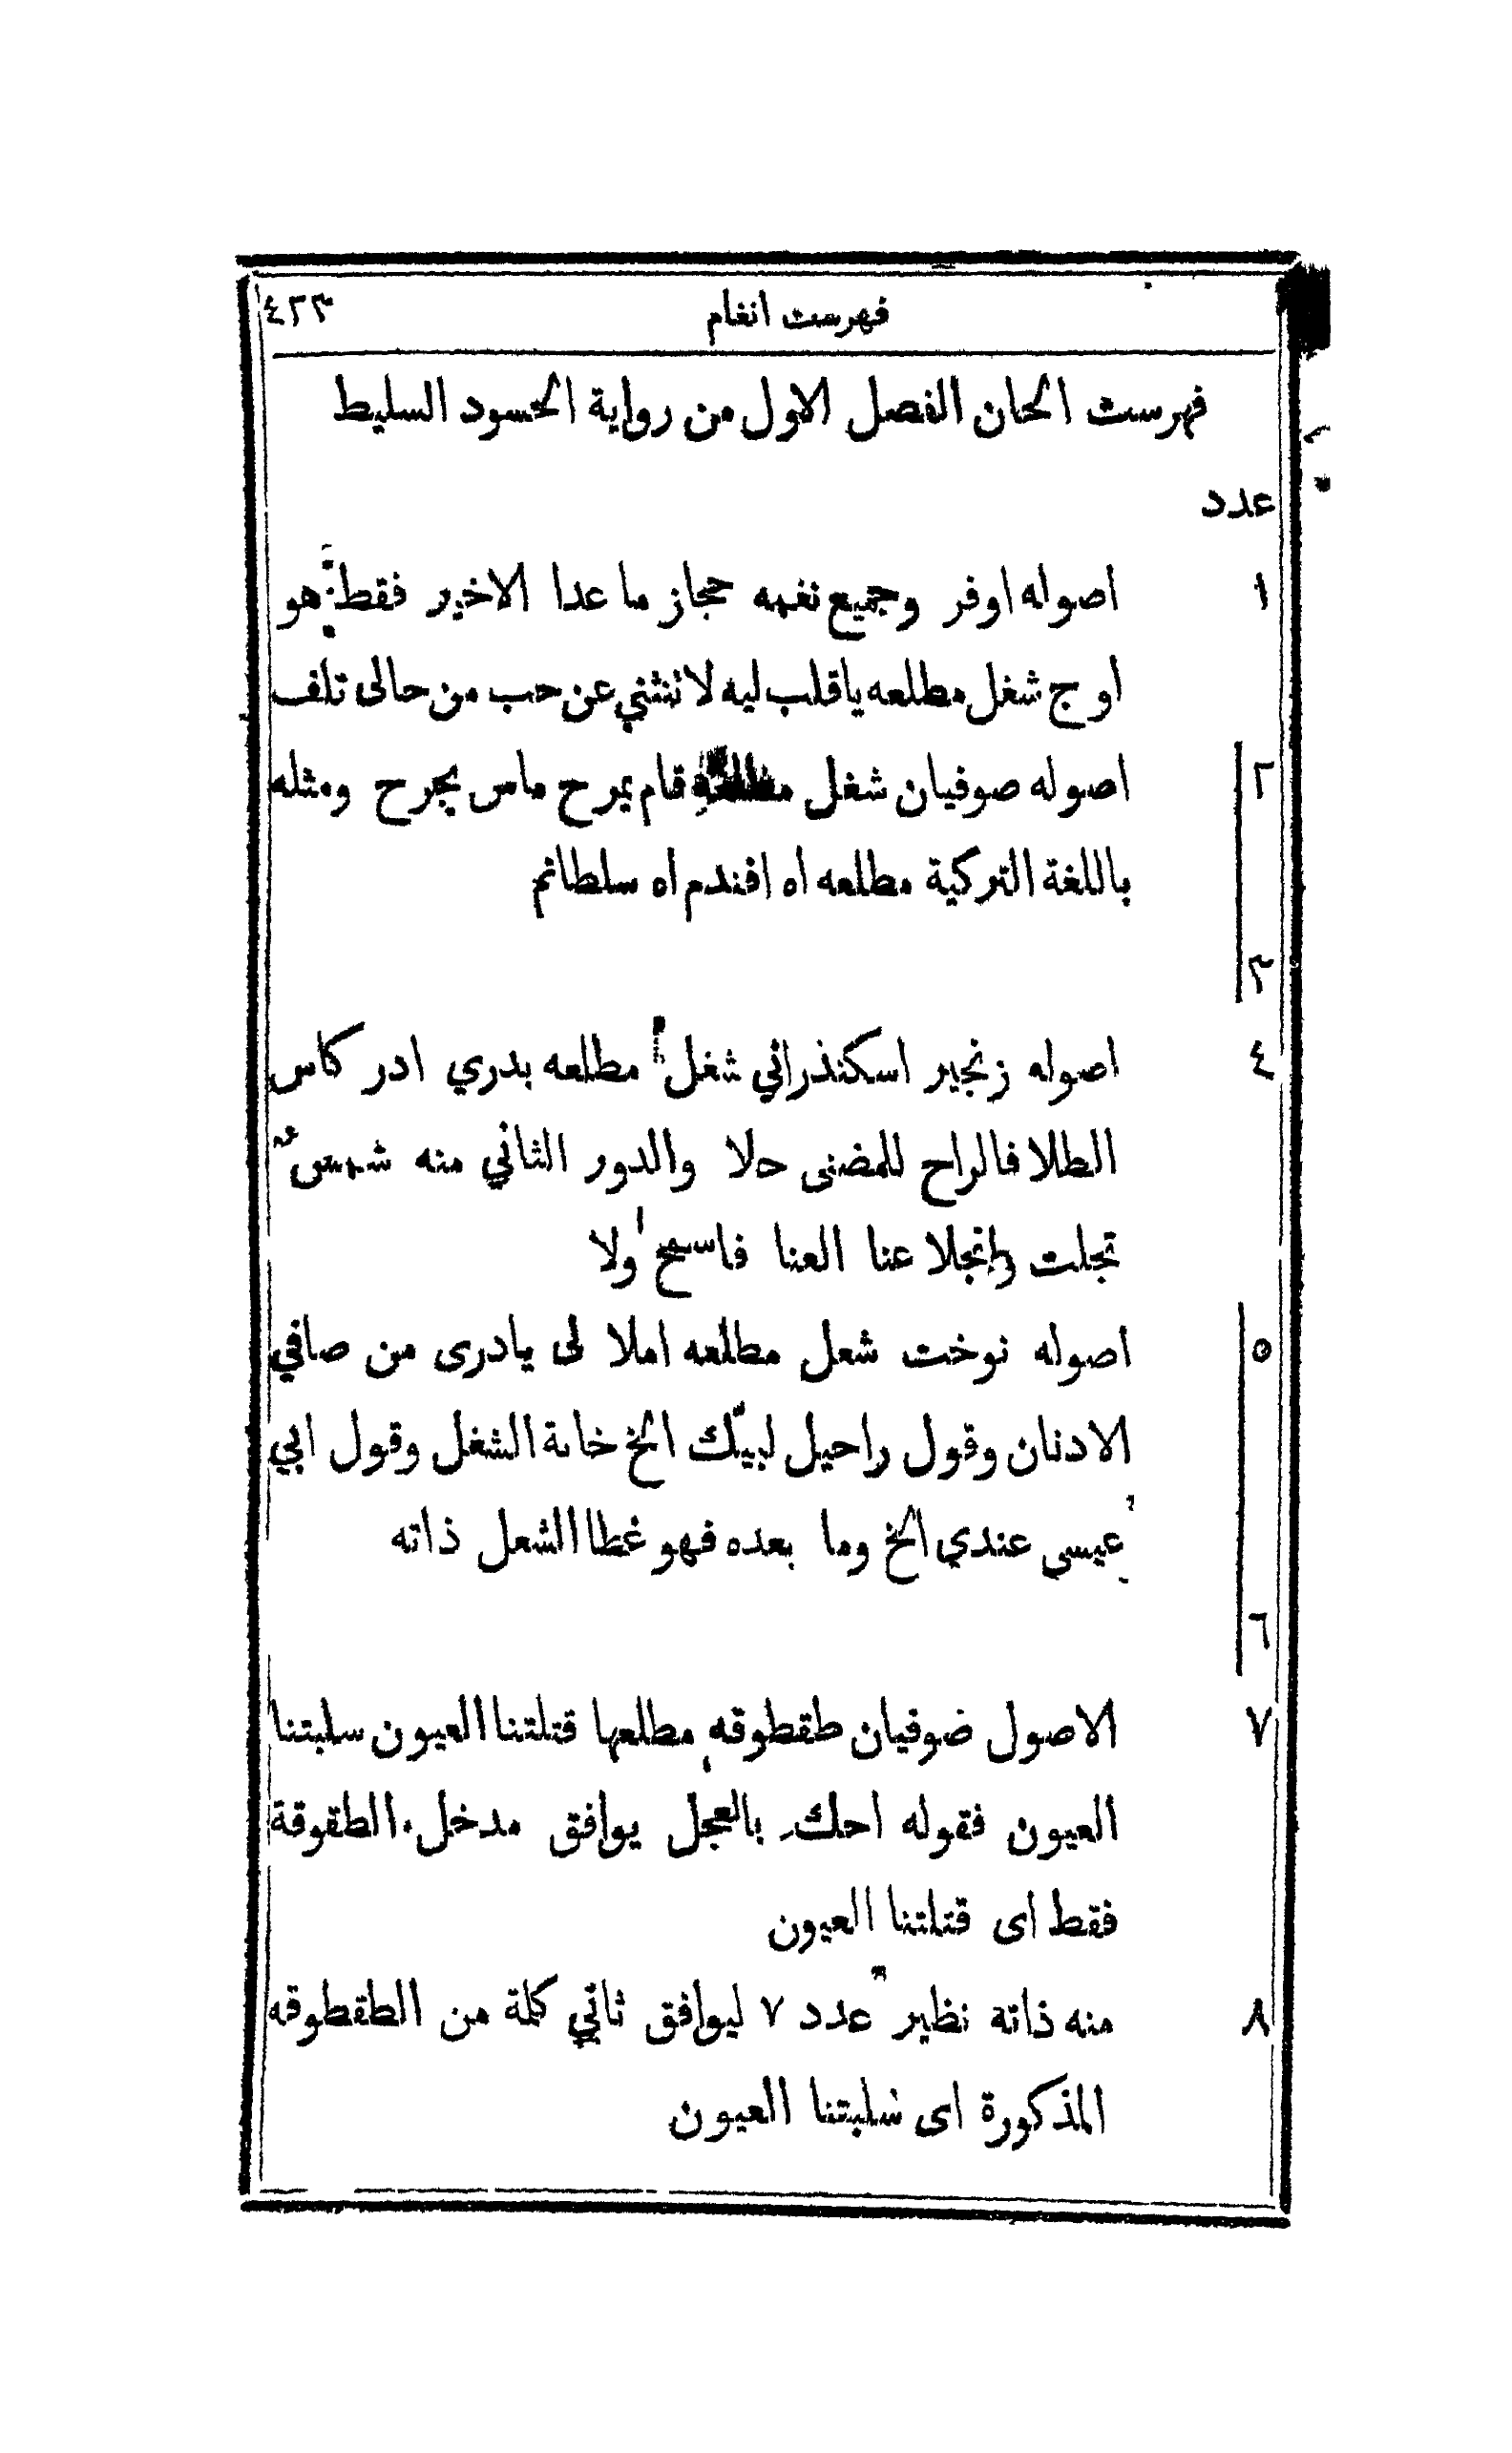 فهرست انغام ٤٢٣
فهرست الحان الفصل الاول من رواية الحسود السليط
عدد
١ اصوله اوفر وجميع نغمه حجاز ما عدا الاخير فقط هو
اوج شغل مطلعه ياقلب ليه لا تنثني عن حب من حالى تلف
٢ اصوله صوفيان شغل مطلعه قام يمرح ماس يجرح ومثله
باللغة التركية مطلعه اه افندم اه سلطانم
٣
٤ اصوله زنجير اسكندراني شغل مطلعه بدري ادر كاس
الطلا فالراح للمضنى حلا والدور الثاني منه شمس
تجلت وانجلا عنا العنا فاسمح ولا
٥ اصوله نوخت شعل مطلعه املا لى يادرى من صافي
الادنان وقول راحيل لبيك الخ خانة الشغل وقول ابي
عيسى عندي الخ وما بعده فهو غطا الشعل ذاته
٦
٧ الاصول ضوفيان طقطوقه مطلعها قتلتنا العيون سلبتنا
العيون فقوله احك بالعجل يوافق مدخل الطقوقة
فقط اى قتلتنا العيون
٨ منه ذاته نظير عدد ٧ ليوافق ثاني كلمة من الطقطوقه
المذكورة اى سلبتنا العيون